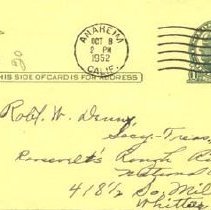 20
ANAHEIM
OCT 8
2 PM
1952
CALIF.
THIS SIDE OF CARD IS FOR ADDRESS
Robt. W. Denny,
Secy-Treas,
Roosevelt's Rough R
National
418½ So. Mil
Whittier